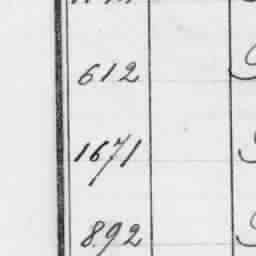 612
1671
892